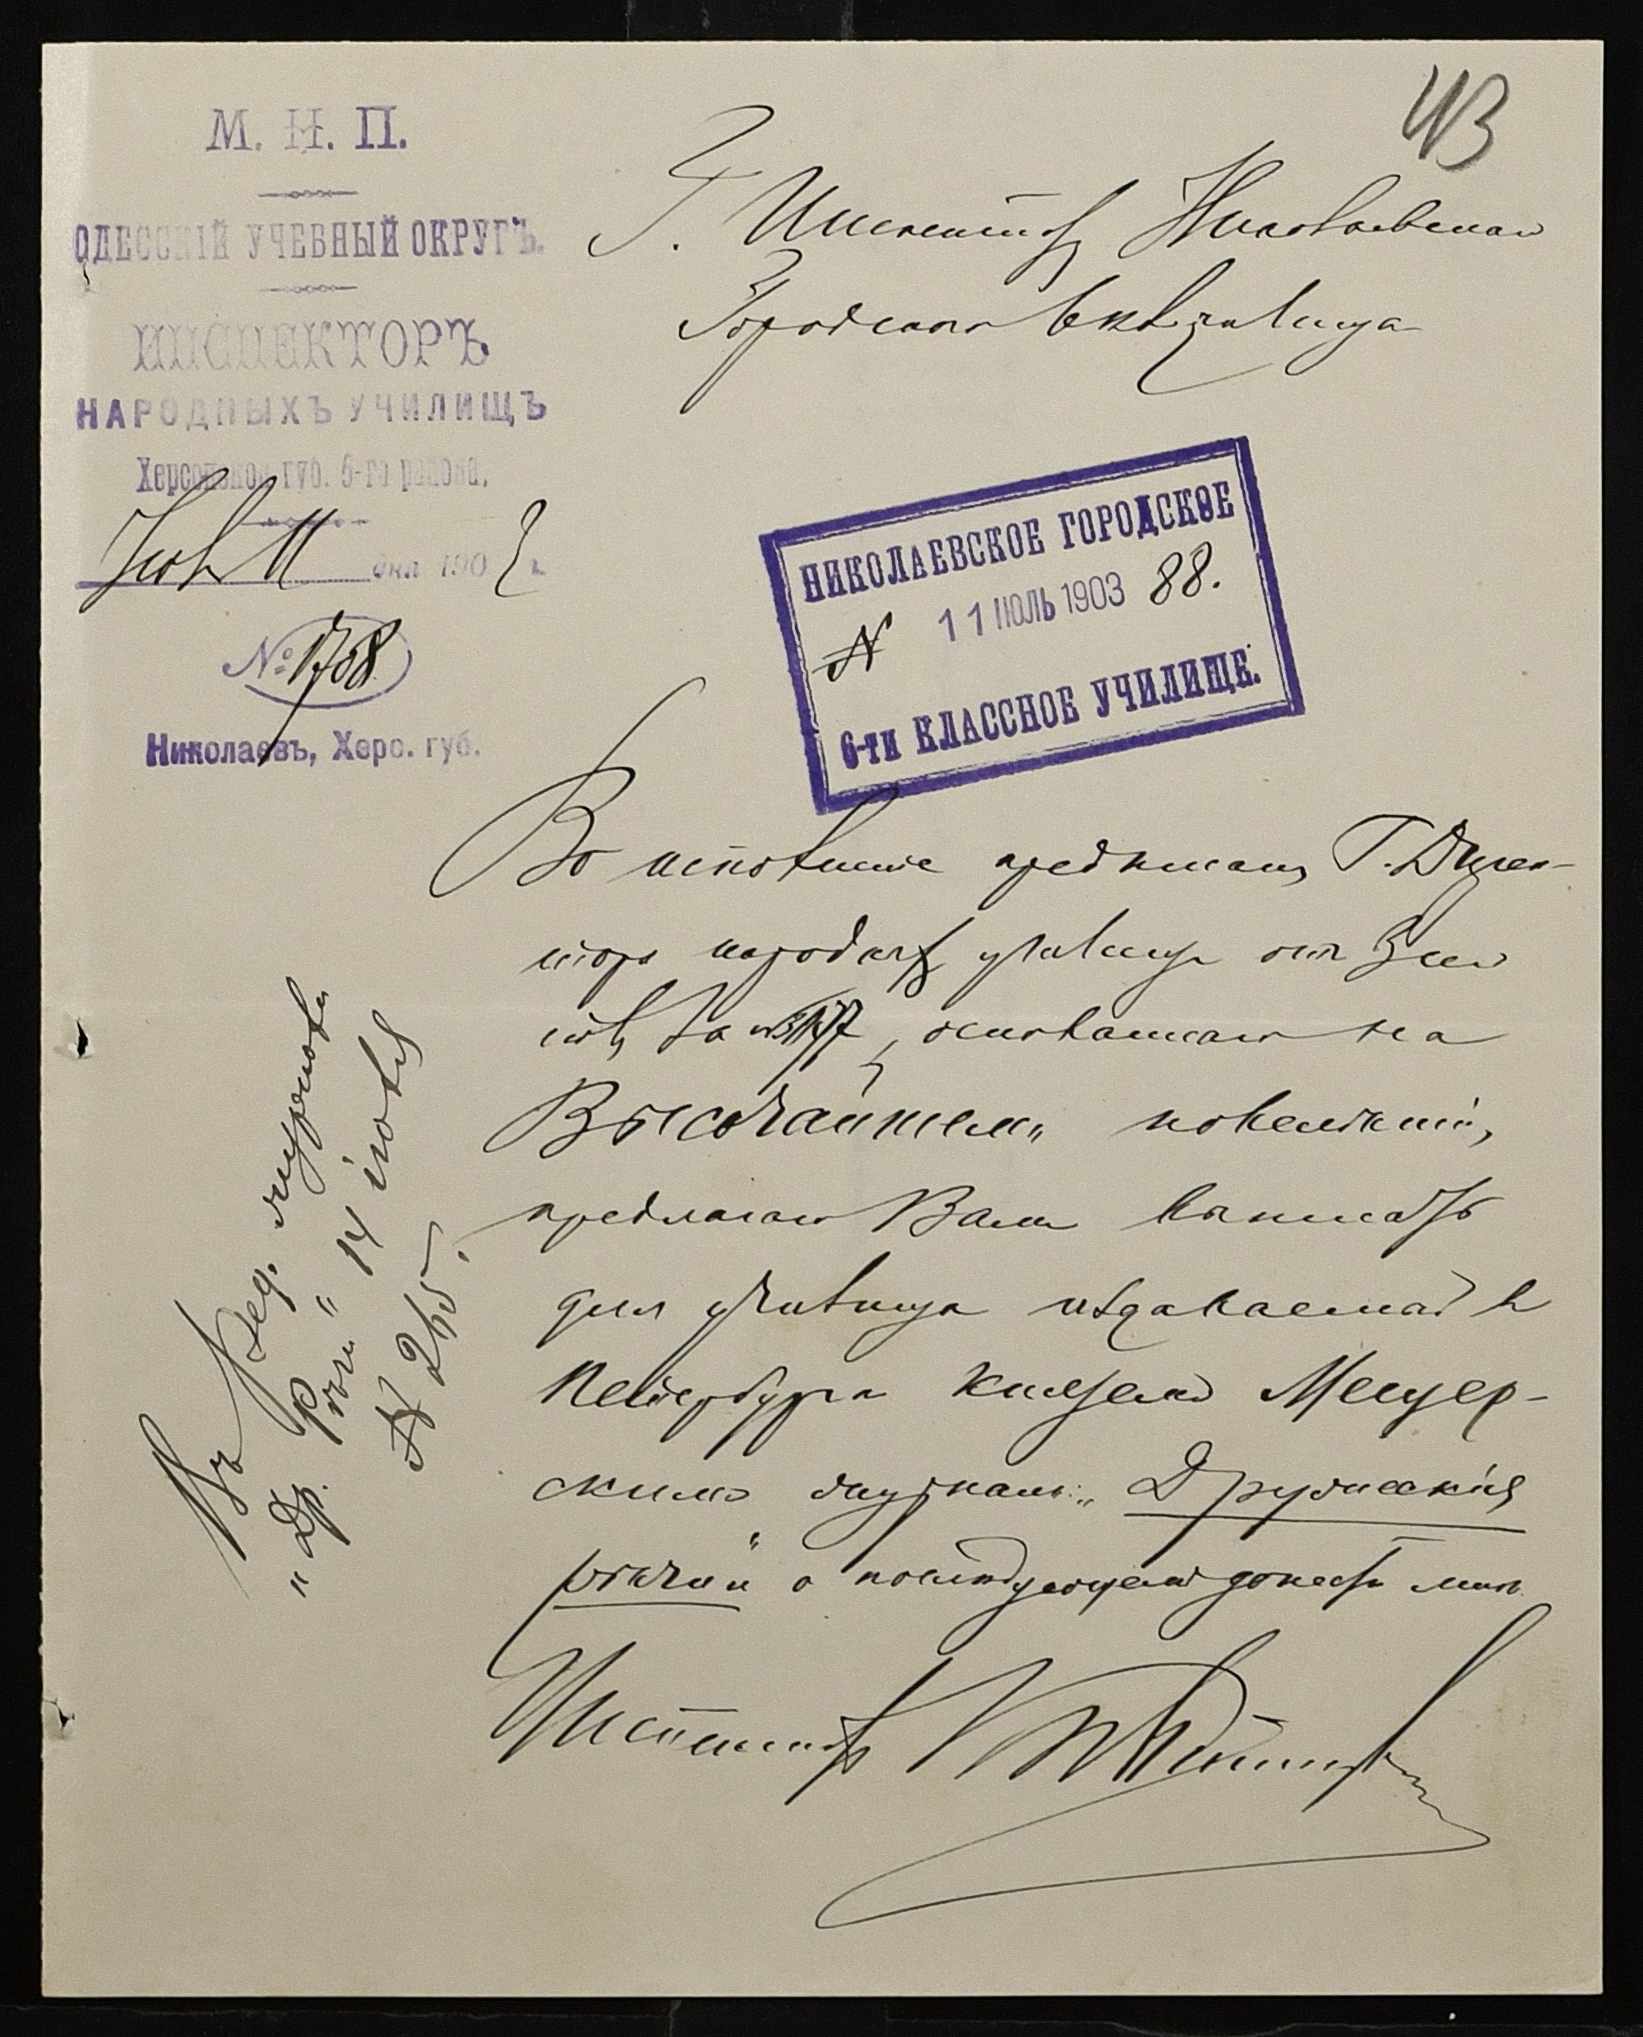 43
М. Н. П.
ОДЕССКІЙ УЧЕБНЫЙ ОКРУГЪ.
ИНСПЕКТОРЪ
НАРОДНЫХЪ УЧИЛИЩЪ
Херсонской губ. 6-го района.
Іюля 11 дня 1903 г.
№ 1758
Николаевъ, Херс. губ.
Г. Инспектору Николаевскаго
Городского 6 кл. училища
НИКОЛАЕВСКОЕ ГОРОДСКОЕ
N 11 ІЮЛЬ 1903 88.
6-ти КЛАССНОЕ УЧИЛИЩЕ.
Во исполненіе предписанія Г. Дирек-
тора народныхъ училищъ отъ
за № , основаннаго на
Высочайшемъ повелѣніи,
предлагаю Вамъ выписать
для училища издаваемый въ
Петербургѣ княземъ Мещер-
скимъ журналъ: „Дружескія
рѣчи" и о послѣдующемъ донести мнѣ.
Инспекторъ
Въ ред. журнала
„Др. рѣчи" 14 іюля
N 245.